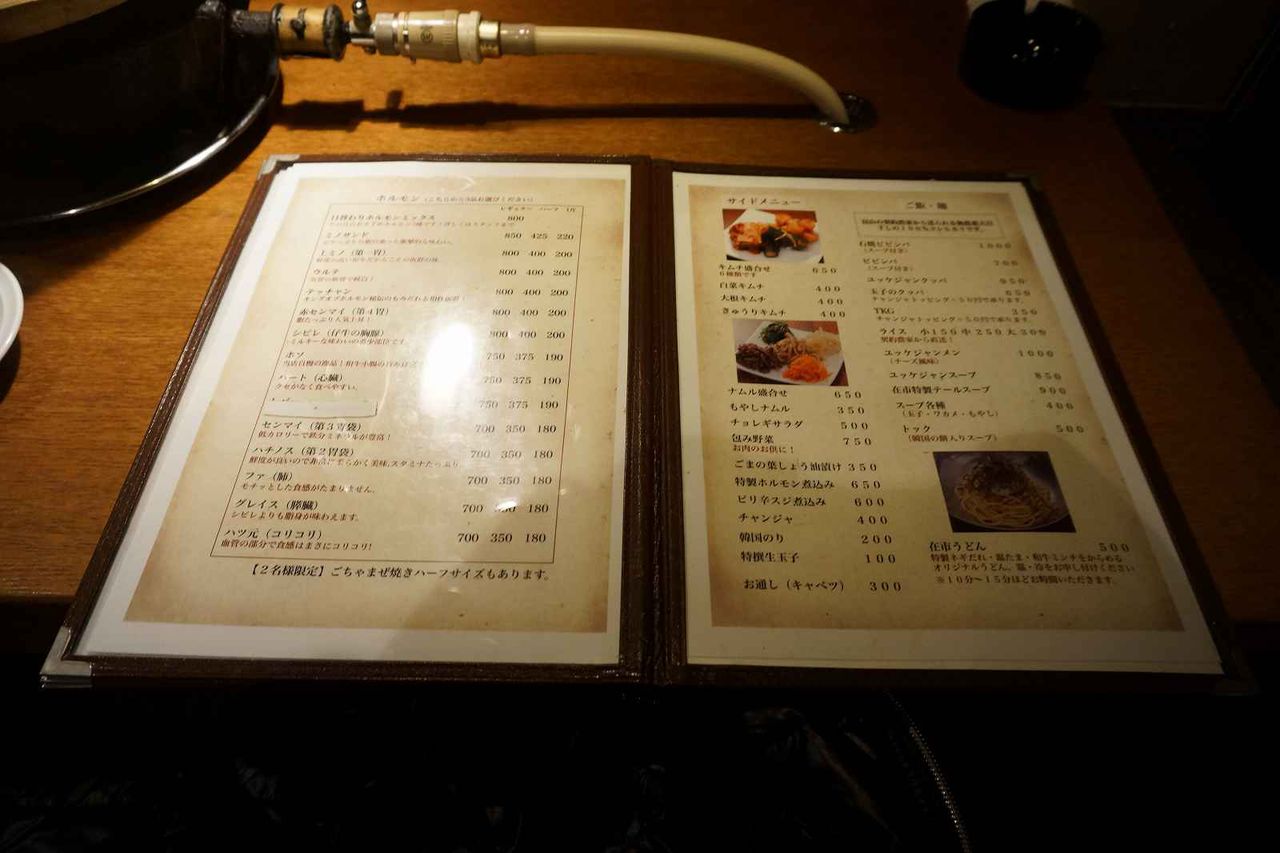 ホルモン（こちらから5品お選びください）
レギュラー ハーフ 1/4
日替わりホルモンミックス 800
ミノサンド 850 425 220
上ミノ（第一胃） 800 400 200
ウルテ 800 400 200
テッチャン 800 400 200
赤センマイ（第４胃） 800 400 200
シビレ（仔牛の胸腺） 800 400 200
ミルキーな味わいの希少部位です。
ホソ 750 375 190
ハート（心臓） 750 375 190
クセがなく食べやすい。
750 375 190
センマイ（第３胃袋） 700 350 180
低カロリーで鉄分ミネラルが豊富！
ハチノス（第２胃袋） 700 350 180
鮮度が良いので非常に柔らかく美味。スタミナたっぷり
ファ（肺） 700 350 180
モチッとした食感がたまりません。
グレイス（膵臓） 700 350 180
シビレよりも脂身が味わえます。
ハツ元（コリコリ） 700 350 180
血管の部分で食感はまさにコリコリ!
【２名様限定】ごちゃまぜ焼きハーフサイズもあります。
サイドメニュー
キムチ盛合せ 650
６種類です
白菜キムチ 400
大根キムチ 400
きゅうりキムチ 400
ナムル盛合せ 650
もやしナムル 350
チョレギサラダ 500
包み野菜 750
お肉のお供に！
ごまの葉しょう油漬け 350
特製ホルモン煮込み 650
ピリ辛スジ煮込み 600
チャンジャ 400
韓国のり 200
特撰生玉子 100
お通し（キャベツ） 300
ご飯・麺
石焼ビビンバ 1000
（スープ付き）
ビビンバ 700
（スープ付き）
ユッケジャンクッパ 950
玉子のクッパ 650
チャンジャトッピング＋５０円で承ります。
TKG 350
チャンジャトッピング＋５０円で承ります。
ライス 小150 中250 大300
契約農家から直送！
ユッケジャンメン 1000
（チーズ風味）
ユッケジャンスープ 850
在市特製テールスープ 900
スープ各種 400
（玉子・ワカメ・もやし）
トック 500
（韓国の餅入りスープ）
在市うどん 500
特製ネギだれ・温たま・和牛ミンチをからめる
オリジナルうどん。温・冷をお申し付けください
※１０分～１５分ほどお時間いただきます。